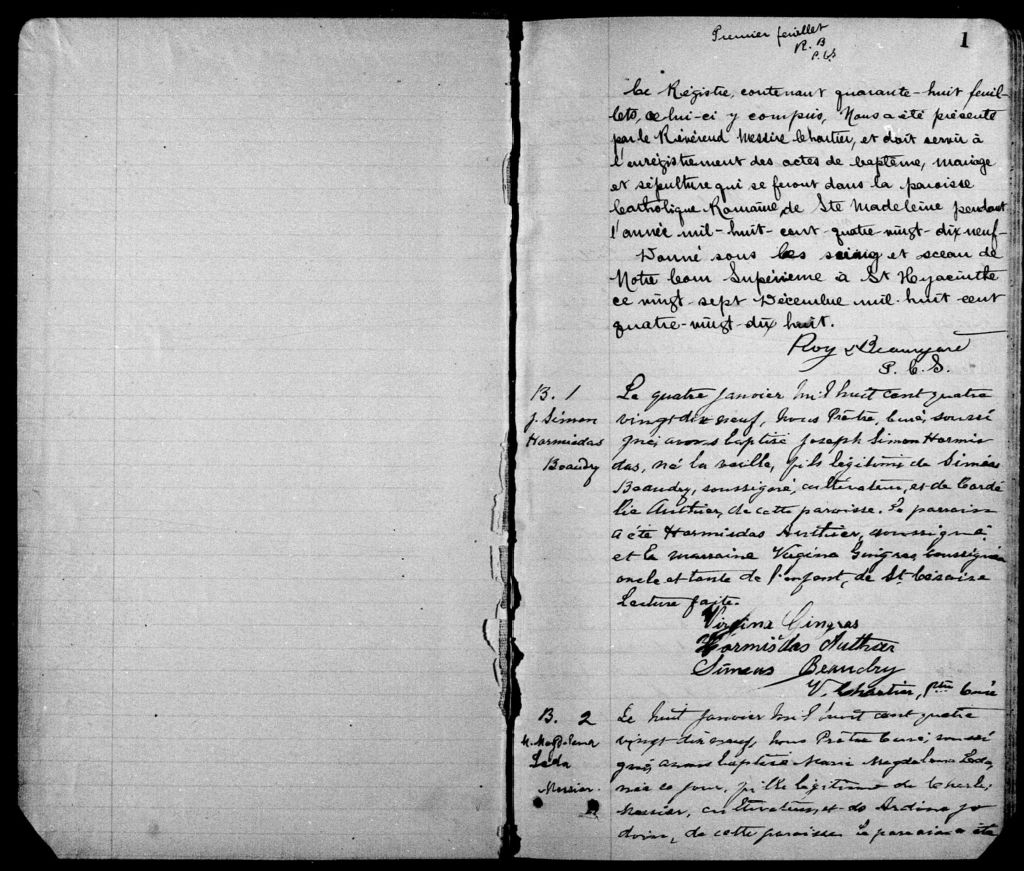 Premier feuillet
1
R. B
P. C. S
Ce Régistre, contenant quarante-huit feuil-
lets, celui-ci y compris, Nous a été présenté
par le Révérend Messire Chartier, et doit servir à
l'enrégistrement des actes de baptême, mariage
et sépulture qui se feront dans la paroisse
Catholique Romaine de Ste Madeleine pendant
l'année mil-huit-cent-quatre-vingt-dix neuf-
Donné sous les seing et sceau de
Notre Cour Supérieure à St Hyacinthe
ce vingt-sept Décembre mil-huit cent
quatre-vingt-dix huit.
Roy & Beauregard
P. C. S.
B. 1
J. Simon
Hormisdas
Beaudry
Le quatre janvier mil huit cent quatre
vingt dix neuf, nous Prêtre, Curé, soussi
gné, avons baptisé Joseph Simon Hormis
das, né la veille, fils légitime de Siméon
Beaudry, soussigné, cultivateur, et de Cordé
lie Authier, de cette paroisse. Le parrain
a été Hormisdas Authier, soussigné,
et la marraine Virgina Gingras, soussignée
oncle et tante de l'enfant, de St. Césaire
Lecture faite.
Virgina Gingras
Hormisdas Authier
Simeus Beaudry
V. Chartier, Ptre Curé
B. 2
M. Magdelena
Leda
Messier
Le huit janvier mil huit cent quatre
vingt dix neuf, nous Prêtre Curé, soussi
gné, avons baptisé Marie Magdelena Leda,
née ce jour, fille légitime de Charles
Messier, cultivateur, et de Ardina Jo
doin, de cette paroisse. Le parrain a été